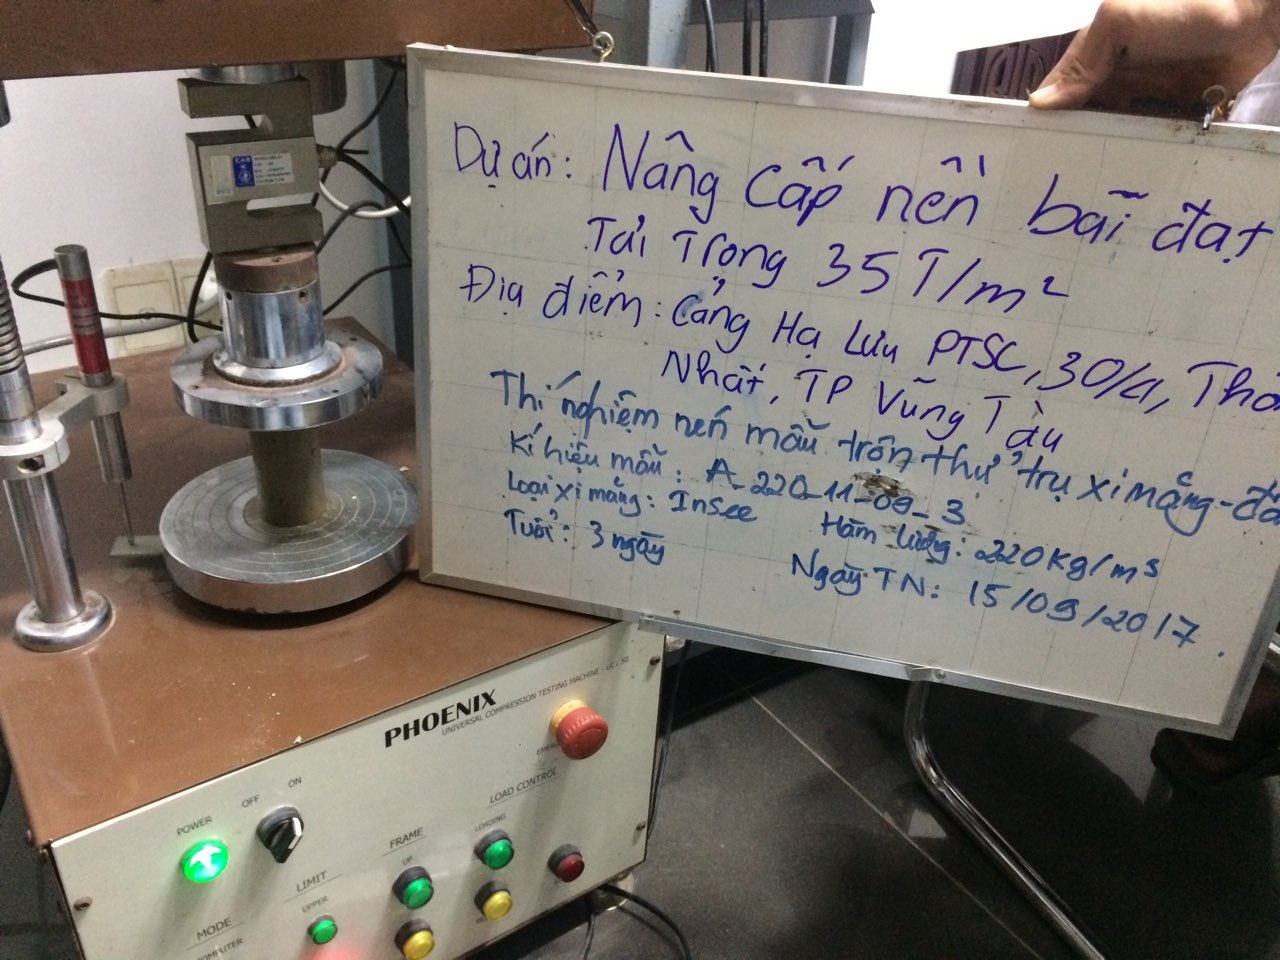 Dự án: Nâng cấp nền bãi đạt
Tải Trọng 35T/m²
Địa điểm: Cảng Hạ Lưu PTSC, 30/4,
Nhất, TP Vũng Tàu
Thí nghiệm nén mẫu trộn thử trụ xi măng-đấ
Kí hiệu mẫu: A_220_11-09_3
Loại xi măng: Insee Hàm lượng: 220kg/m³
Tuổi: 3 ngày Ngày TN: 15/09/2017.
CAS
PHOENIX
UNIVERSAL COMPRESSION TESTING MACHINE - UC: 50
POWER
OFF
ON
LOAD CONTROL
LOADING
FRAME
UP
LIMIT
UPPER
MODE